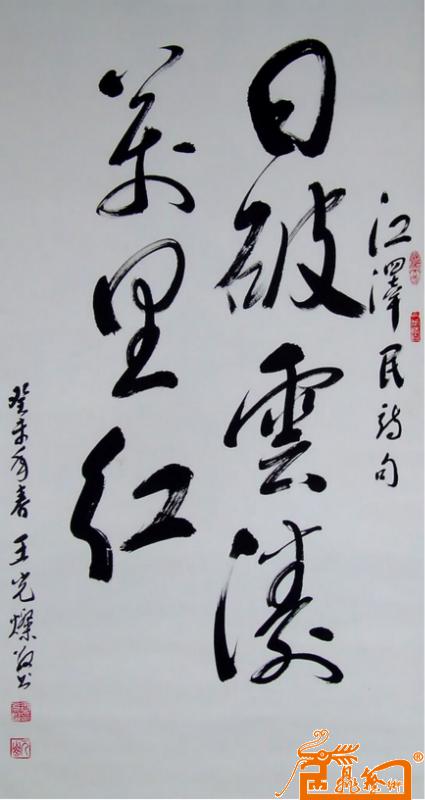 江澤民詩句
日破雲濤
萬里紅
癸未年春 王光燦敬书